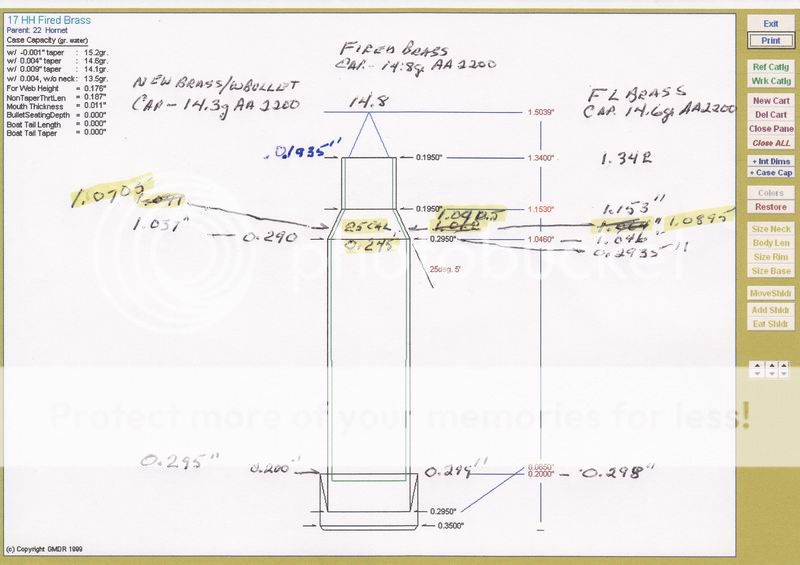 17 HH Fired Brass
Parent: 22 Hornet
Case Capacity (gr. water)
w/ -0.001" taper : 15.2gr.
w/ 0.004" taper : 14.6gr.
w/ 0.009" taper : 14.1gr.
w/ 0.004, w/o neck: 13.5gr.
For Web Height = 0.176"
NonTaperThrtLen = 0.187"
Mouth Thickness = 0.011"
BulletSeatingDepth = 0.000"
Boat Tail Length = 0.000"
Boat Tail Taper = 0.000"
FIRED BRASS
CAP- 14.8g AA1200
NEW BRASS/W BULLET
CAP- 14.3g AA1200
FL BRASS
CAP. 14.6g AA1200
14.8
1.5039"
0.1935"
0.1950"
1.3400"
1.342
1.0705
0.1950"
1.1530"
1.153"
1.0895
25CAL
1.037"
0.290
0.245
0.2950"
1.0460"
1.046
0.2935"
25deg. 5'
0.295"
0.200"
0.299"
0.0650"
0.2000"
0.298"
0.2950"
0.3500"
(c) Copyright GMDR 1999
Exit
Print
Ref Catlg
Wrk Catlg
New Cart
Del Cart
Close Pane
Close ALL
+ Int Dims
+ Case Cap
Colors
Restore
Size Neck
Body Len
Size Rim
Size Base
MoveShldr
Add Shldr
Eat Shldr
photobucket
Protect more of your memories for less!